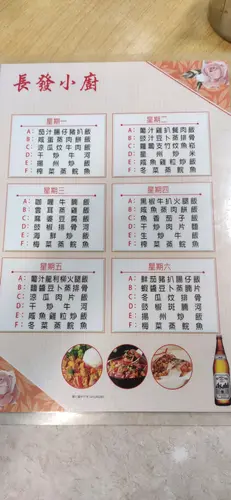 長發小廚
星期一
A：茄汁腸仔豬扒飯
B：咸蛋蒸肉餅飯
C：涼瓜炆排骨
D：干炒牛河
E：揚州炒飯
F：榨菜蒸鯇魚
星期二
A：薯汁雞扒餐肉飯
B：豉汁豆卜蒸排骨
C：蘿蔔支竹炆魚菘
D：星州炒米
E：咸魚雞粒炒飯
F：梅菜蒸鯇魚
星期三
A：咖喱牛腩飯
B：雲耳蒸雞飯
C：麻婆豆腐飯
D：豉椒排骨河
E：西炒飯
F：梅菜蒸鯇魚
星期四
A：黑椒牛扒火腿飯
B：咸魚蒸肉餅飯
C：魚香茄子飯
D：干炒肉片麵
E：生炒牛飯
F：榨菜蒸鯇魚
星期五
A：薯汁龍利柳火腿飯
B：麵醬豆卜蒸排骨
C：涼瓜肉片飯
D：干炒牛河
E：咸魚雞粒炒飯
F：冬菜蒸鯇魚
星期六
A：鮮茄豬扒腸仔飯
B：蝦醬豆卜蒸腩片
C：冬瓜炆排骨
D：豉椒斑腩河
E：揚州炒飯
F：冬菜蒸鯇魚
Asahi